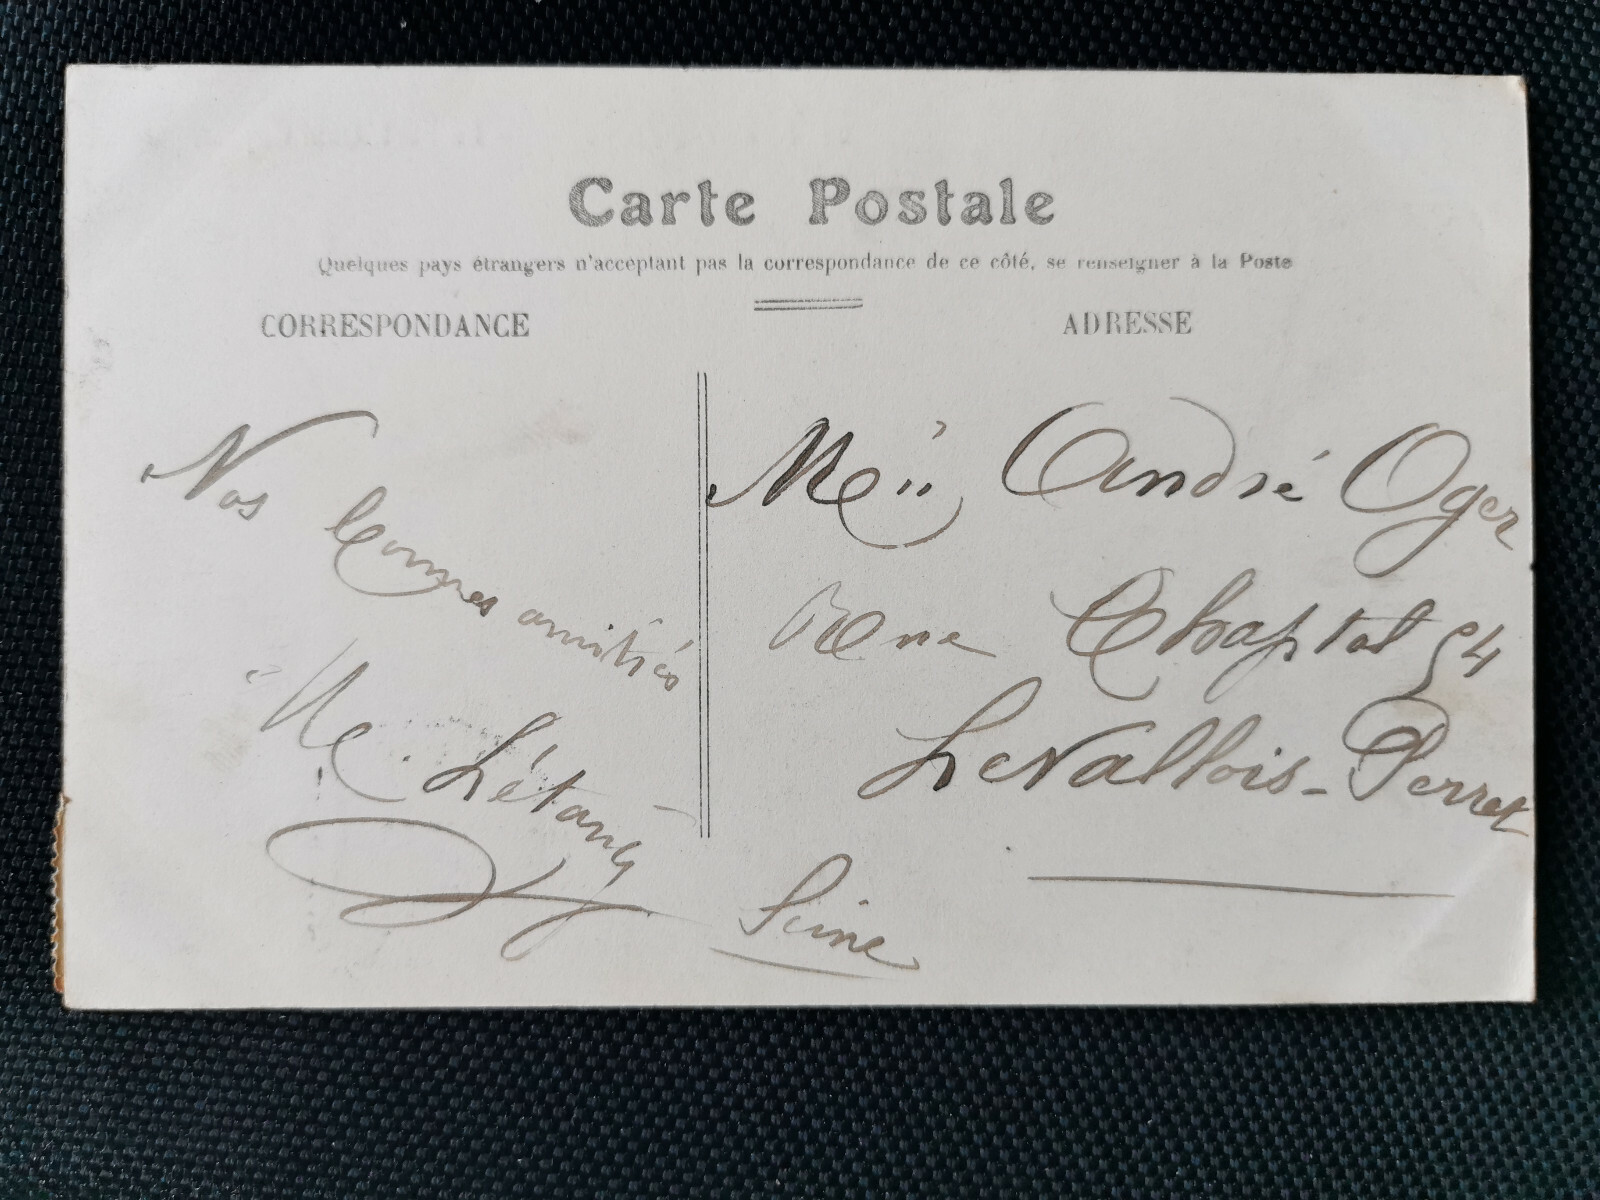 Carte Postale
Quelques pays étrangers n'acceptant pas la correspondance de ce côté, se renseigner à la Poste
CORRESPONDANCE
Nos bonnes amitiés
Létang
ADRESSE
André Oger
Rue Chaptal 54
Levallois-Perret
Seine